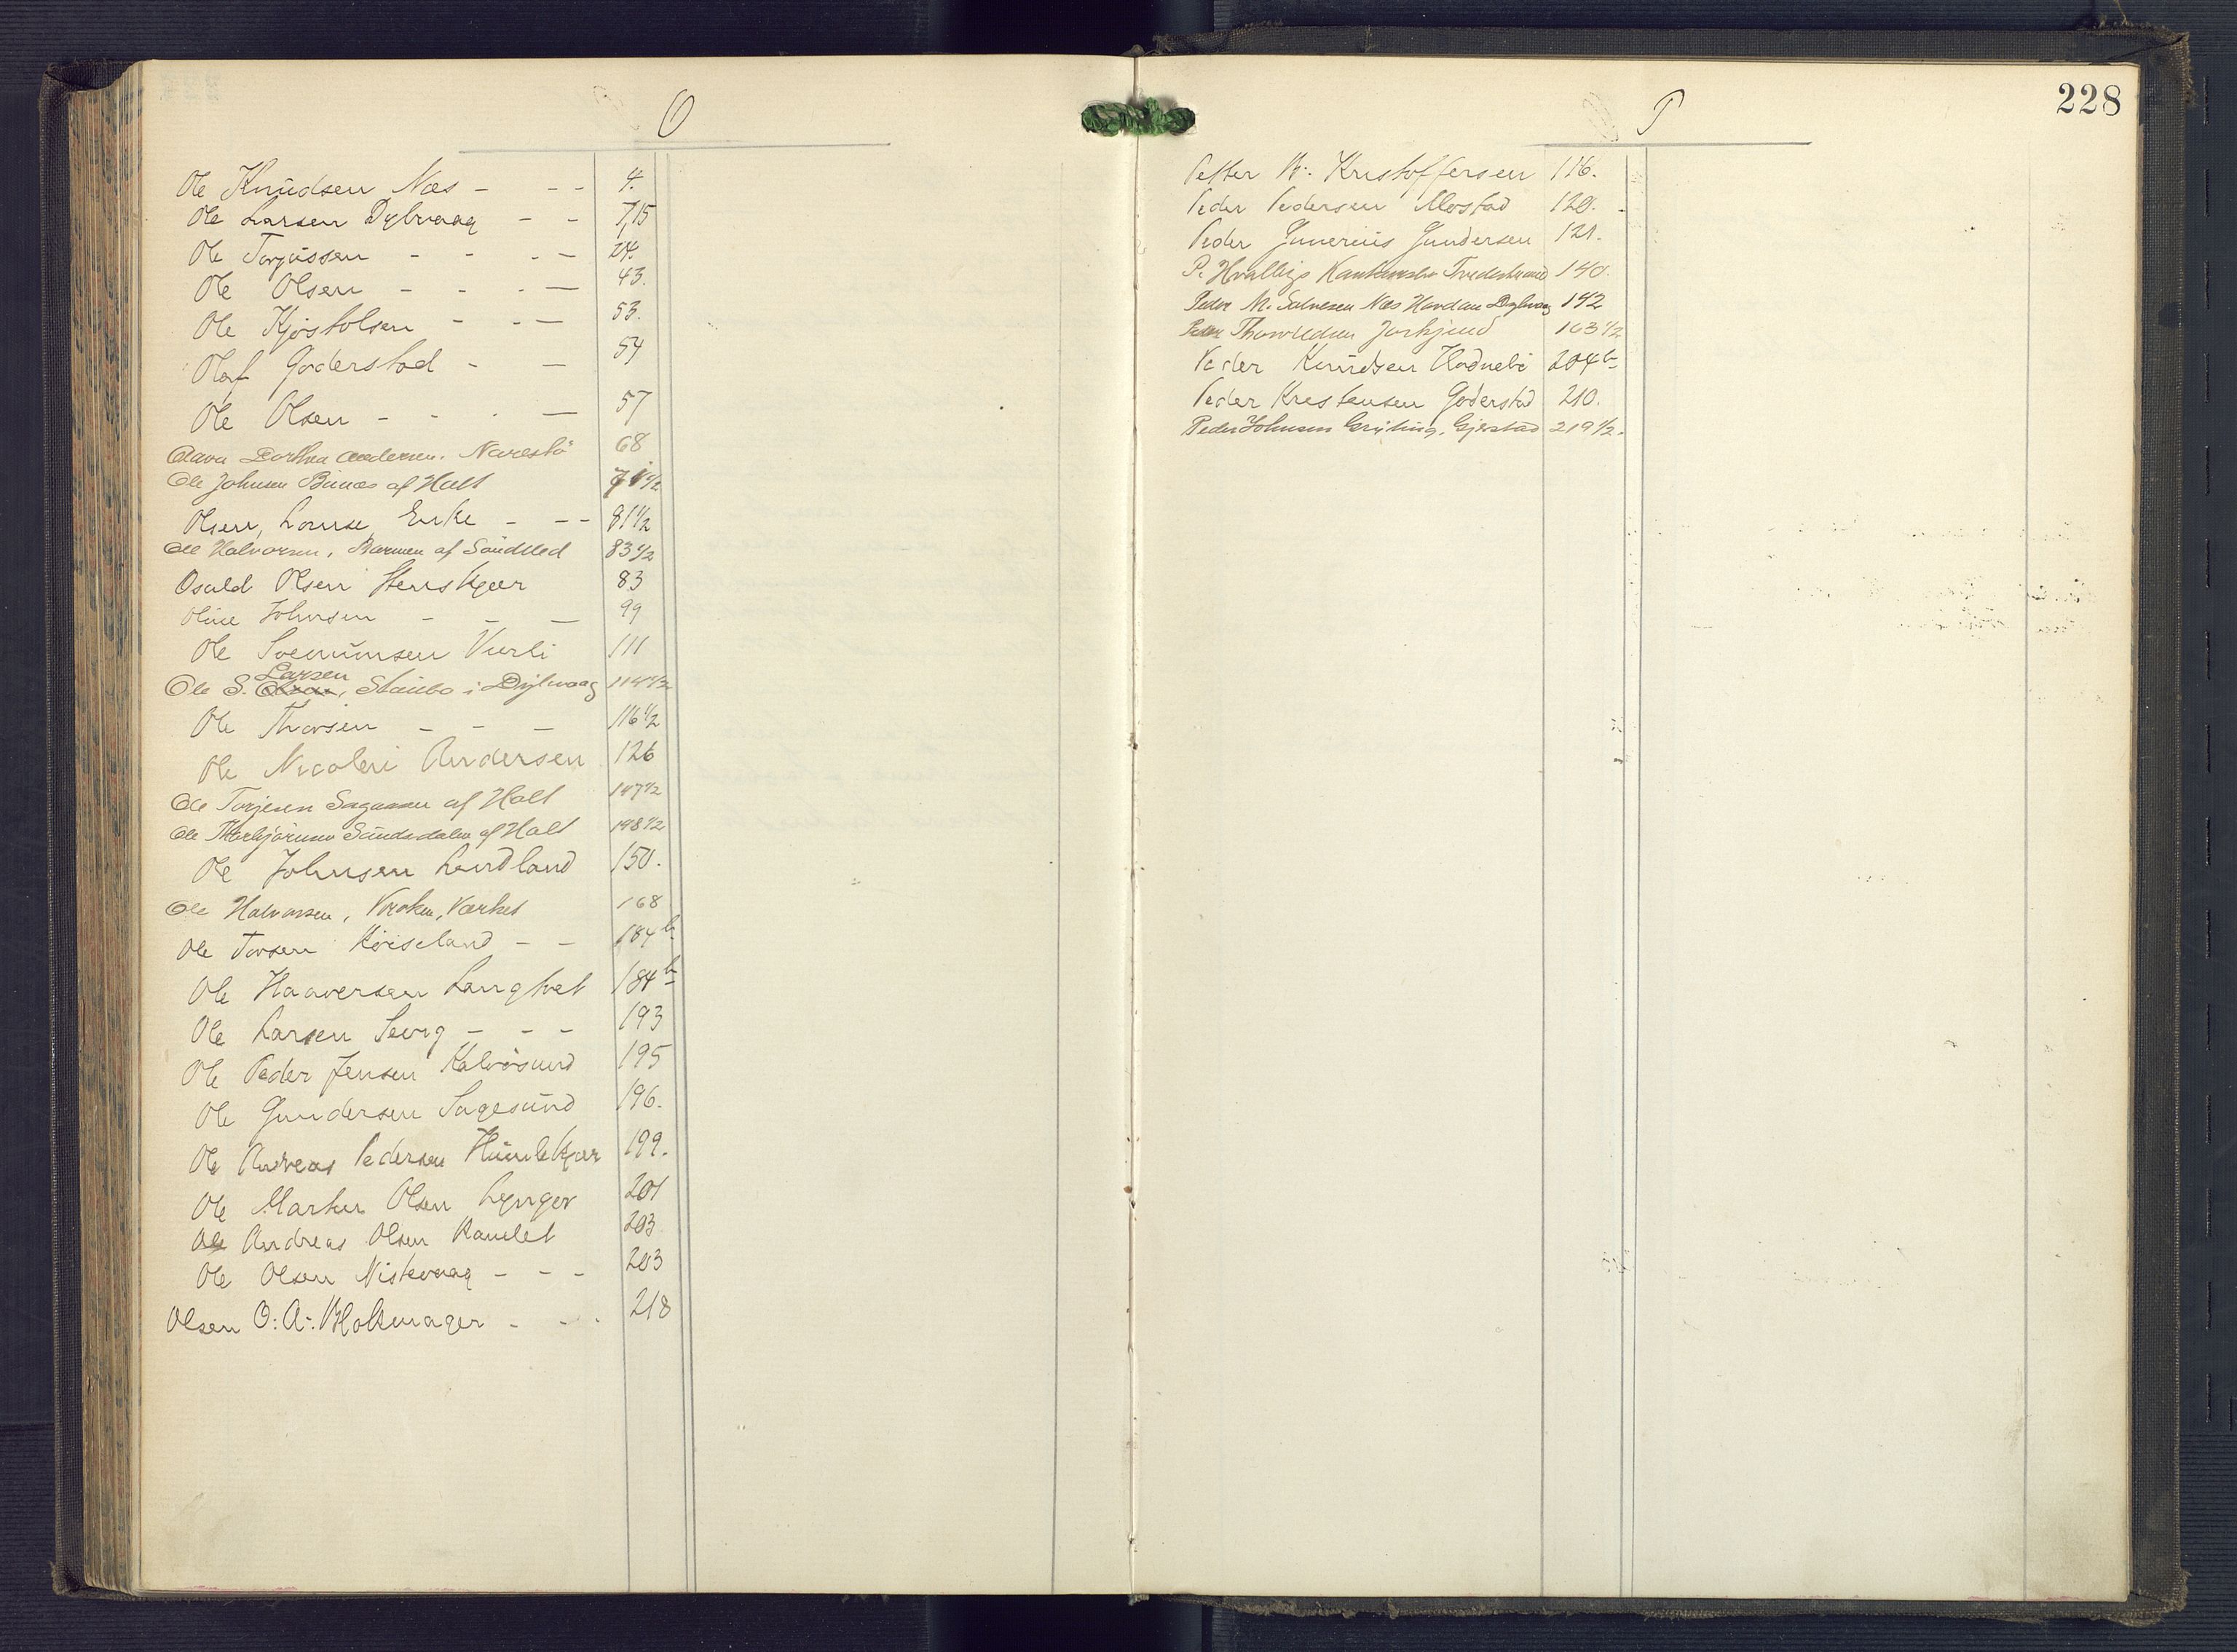 O
Ole Knudsen Næs - - - 4.
Ole Larsen Dybvaag - - 7,15
Ole Torjussen - - - - 24.
Ole Olsen - - - - 43.
Ole Kjøstolsen - - - 53.
Olaf Goderstad - - 54
Ole Olsen - - - - 57
Olava Dorthea Andersen. Narestö 68
Ole Johnsen Biinæs af Holt 71 1/2
Olsen, Lovise, Enke - - - 81 1/2
Ole Halvorsen, Barmen af Søndeled 83 1/2
Osuld Olsen Stenskjær 83
Oline Johnsen - - - 99
Ole Svenumsen Vierli 111
Larsen
Ole S. Olsen, Staubo i Dybvaag 114 1/2
Ole Thorsen - - - 116 1/2
Ole Nicolai Andersen 126
Ole Torjesen Sagaasen af Holt 147 1/2
Ole Thorbjørnsen Sundsdalen af Holt 148 1/2
Ole Johnsen Lindland 150.
Ole Halvorsen, Kroken, Værket 168
Ole Torsen Røiseland - - 184 b
Ole Haaversen Langtvet 184 b
Ole Larsen Sevig - - - 193
Ole Peder Jensen Kalvøsund 195
Ole Gundersen Sagesund 196.
Ole Andreas Pedersen Humlekjær 199.
Ole Martin Olsen Lynger 201
Ole Andreas Olsen Ramlet 203
Ole Olsen Nistevaag - - - 203
Olsen O: A: Blokmager - - . 218
P 228
Petter B: Kristoffersen 116.
Peder Pedersen Mostad 120.
Peder Gunerius Gundersen 121.
P. Hvalbyes Tvedestrand 140.
Peder M. Salvesen Næs Dybvaag 142
Peder Thorvildsen 163 1/2
Peder Knudsen Hodnebø 204 b
Peder Kristensen Goderstad 210.
Peder Johnsen Gryting, Gjerstad 219 1/2.